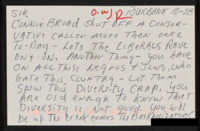 SIR
O.W.JR BURBANK 10-28
CONNIE BROAD SHUT OFF A CONSER-
VATIVE CALLER MORE THAN ONCE
TO-DAY - LETS THE LIBERALS RAVE
ON, ANOTHER THING - YOU HAVE
ON ALL THESE NEGROS & JEWS, WHO
HATE THIS COUNTRY - LET THEM
SPEW THIS DIVERSITY CRAP, YOU
ARE OLD ENOUGH TO KNOW THAT
DIVERSITY IS NOT GOOD, YOU WILL
BE UP THE CREEK COMES THE